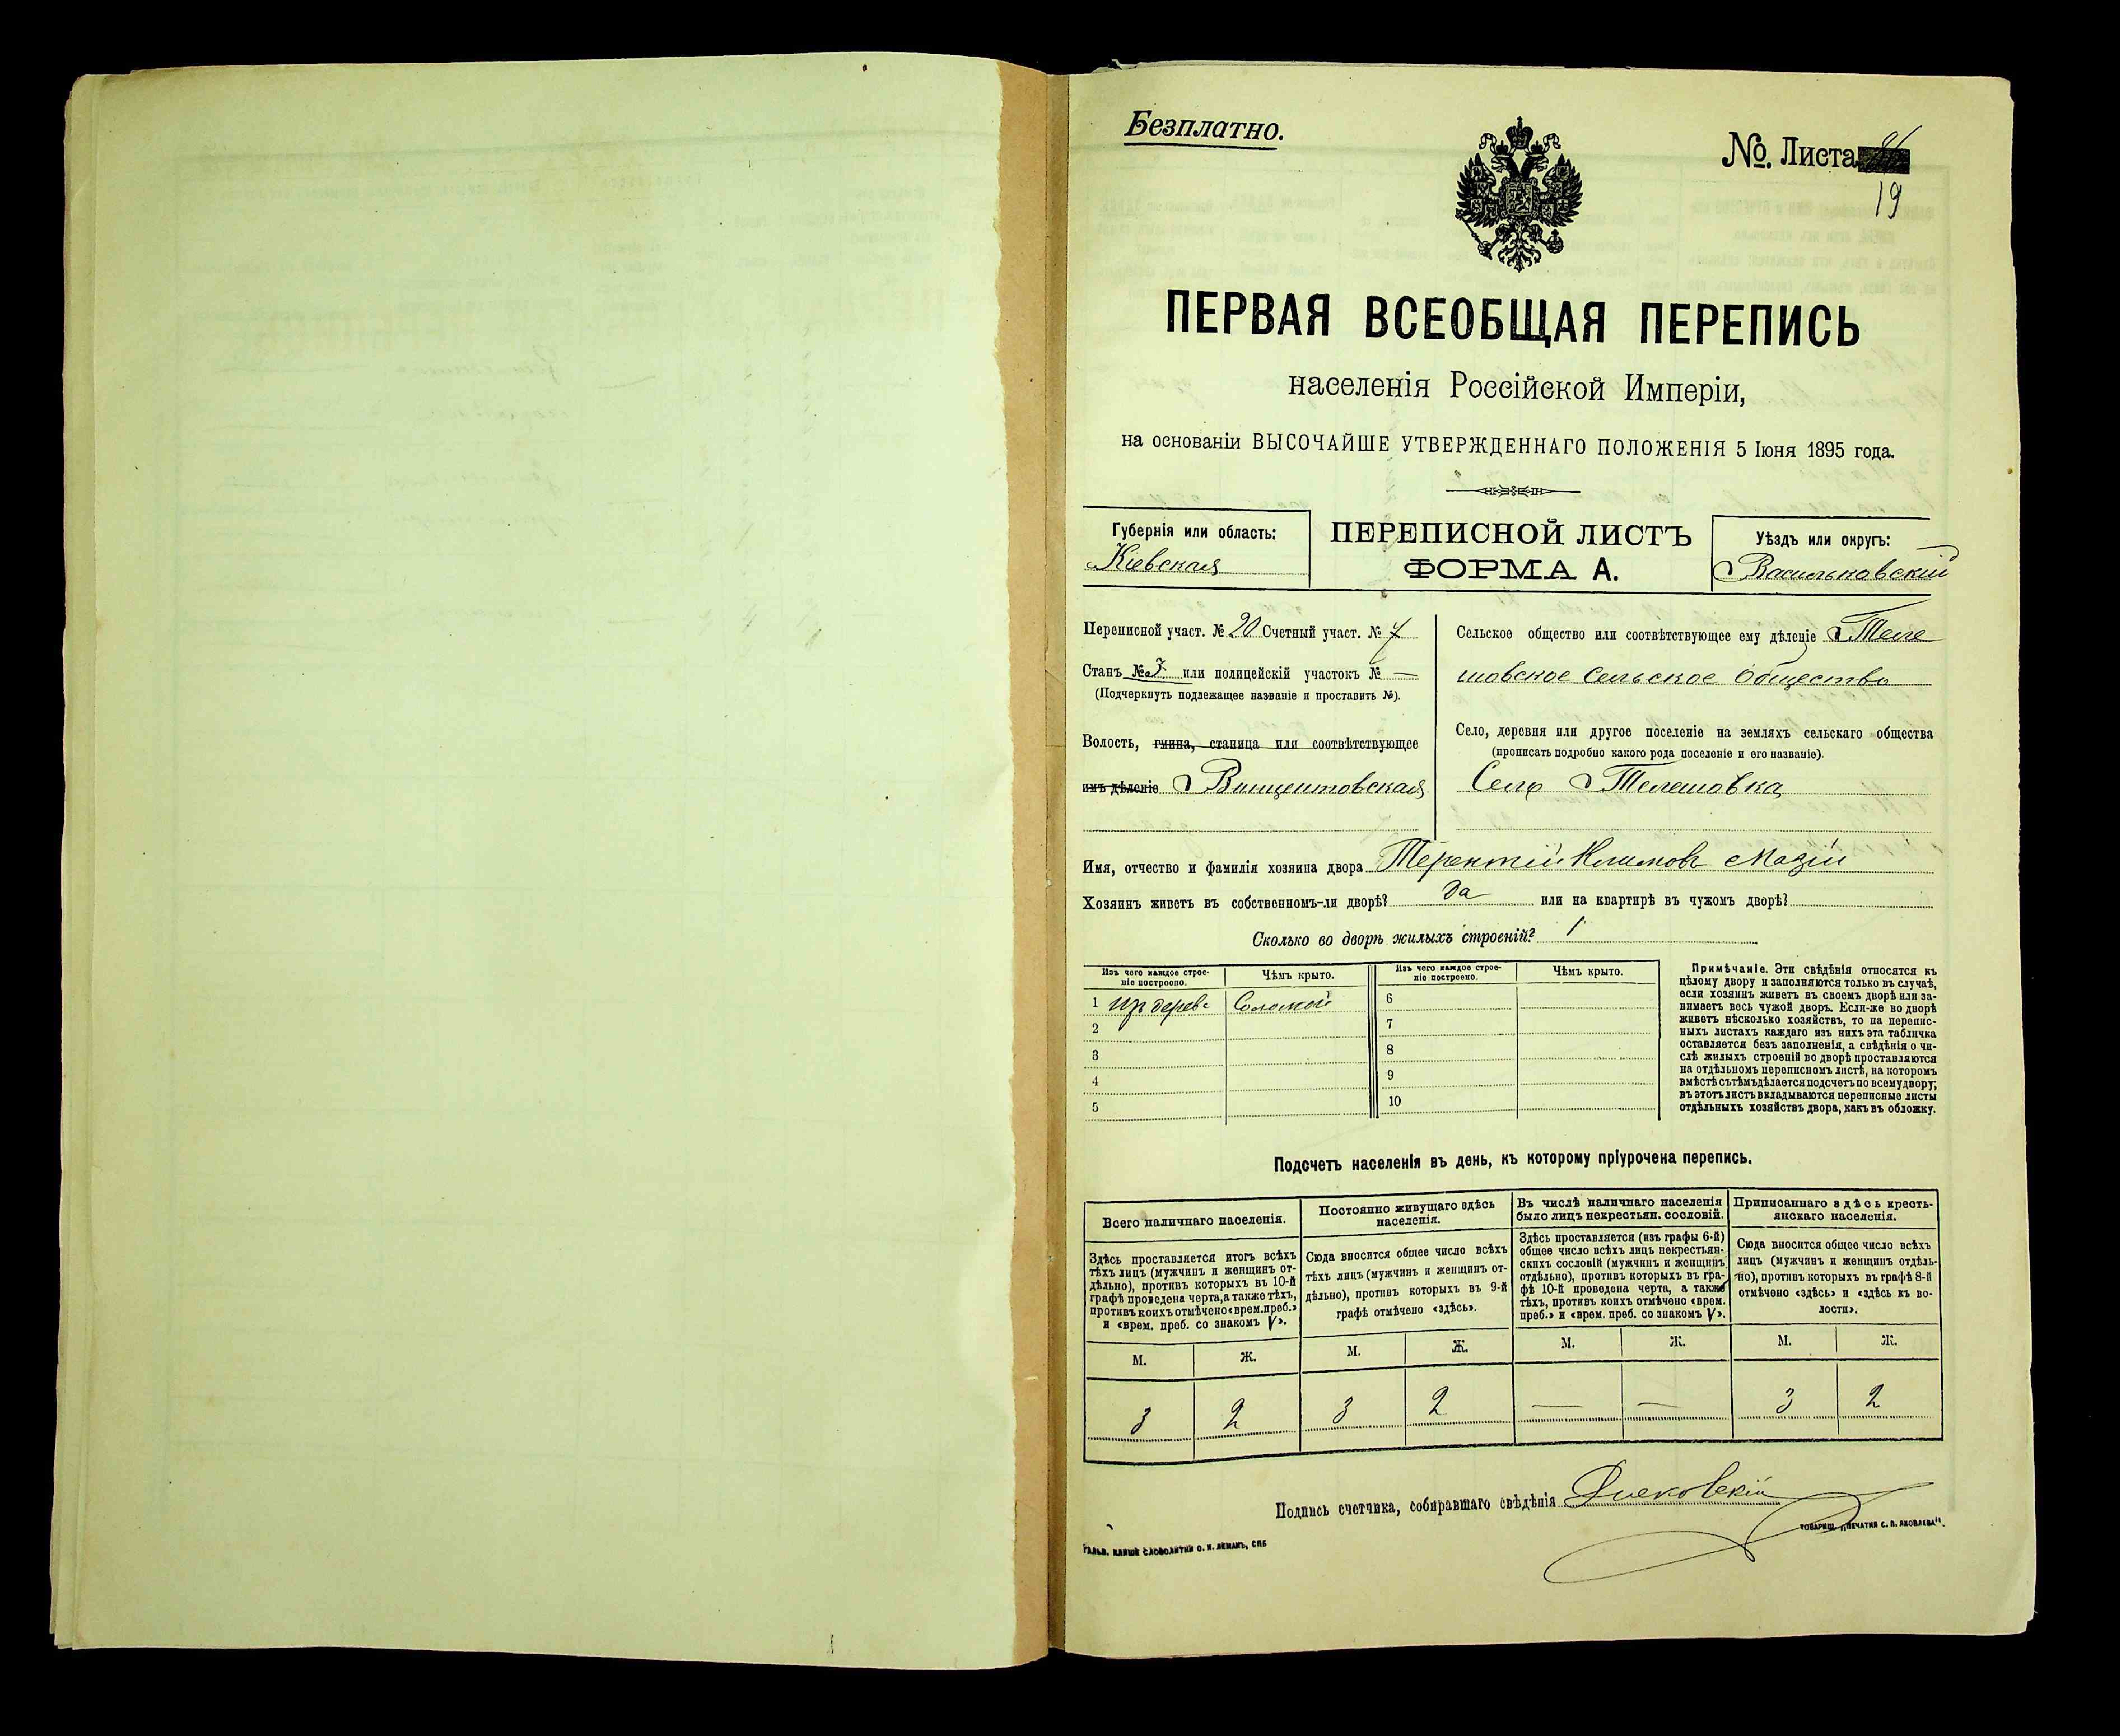 Безплатно.
№. Листа
19
ПЕРВАЯ ВСЕОБЩАЯ ПЕРЕПИСЬ
населенія Россійской Имперіи,
на основаніи ВЫСОЧАЙШЕ УТВЕРЖДЕННАГО ПОЛОЖЕНІЯ 5 Іюня 1895 года.
Губернія или область:
Кіевская
ПЕРЕПИСНОЙ ЛИСТЪ
ФОРМА А.
Уѣздъ или округъ:
Васильковскій
Переписной участ. № 20 Счетный участ. № 7
Станъ № 3 или полицейскій участокъ № —
(Подчеркнуть подлежащее названіе и проставить №).
Волость, гмина, станица или соотвѣтствующее
имъ дѣленіе Винцентовская
Сельское общество или соотвѣтствующее ему дѣленіе Теле
шовское сельское общество
Село, деревня или другое поселеніе на земляхъ сельскаго общества
(прописать подробно какого рода поселеніе и его названіе).
Село Телешовка
Имя, отчество и фамилія хозяина двора Терентій Климовъ Мазій
Хозяинъ живетъ въ собственномъ-ли дворѣ? да или на квартирѣ въ чужомъ дворѣ?
Сколько во дворѣ жилыхъ строеній? 1
Изъ чего каждое строе-
ніе построено.
Чѣмъ крыто.
Изъ чего каждое строе-
ніе построено.
Чѣмъ крыто.
1 изъ дерева Соломой
2
3
4
5
6
7
8
9
10
Примѣчаніе. Эти свѣдѣнія относятся къ
цѣлому двору и заполняются только въ случаѣ,
если хозяинъ живетъ въ своемъ дворѣ или за-
нимаетъ весь чужой дворъ. Если-же во дворѣ
живетъ нѣсколько хозяйствъ, то на перепис-
ныхъ листахъ каждаго изъ нихъ эта табличка
оставляется безъ заполненія, а свѣдѣнія о чи-
слѣ жилыхъ строеній во дворѣ проставляются
на отдѣльномъ переписномъ листѣ, на которомъ
вмѣстѣ съ тѣмъ дѣлается подсчетъ по всему двору;
въ этотъ листъ вкладываются переписные листы
отдѣльныхъ хозяйствъ двора, какъ въ обложку.
Подсчетъ населенія въ день, къ которому пріурочена перепись.
Всего наличнаго населенія.
Постоянно живущаго здѣсь
населенія.
Въ числѣ наличнаго населенія
было лицъ некрестьян. сословій.
Приписаннаго здѣсь кресть-
янскаго населенія.
Здѣсь проставляется итогъ всѣхъ
тѣхъ лицъ (мужчинъ и женщинъ от-
дѣльно), противъ которыхъ въ 10-й
графѣ проведена черта, а также тѣхъ,
противъ коихъ отмѣчено «врем. преб.»
и «врем. преб. со знакомъ V».
Сюда вносится общее число всѣхъ
тѣхъ лицъ (мужчинъ и женщинъ от-
дѣльно), противъ которыхъ въ 9-й
графѣ отмѣчено «здѣсь».
Здѣсь проставляется (изъ графы 6-й)
общее число всѣхъ лицъ некрестьян-
скихъ сословій (мужчинъ и женщинъ
отдѣльно), противъ которыхъ въ гра-
фѣ 10-й проведена черта, а также
тѣхъ, противъ коихъ отмѣчено «врем.
преб.» и «врем. преб. со знакомъ V».
Сюда вносится общее число всѣхъ
лицъ (мужчинъ и женщинъ отдѣль-
но), противъ которыхъ въ графѣ 8-й
отмѣчено «здѣсь» и «здѣсь къ во-
лости».
М. Ж. М. Ж. М. Ж. М. Ж.
3 2 3 2 — — 3 2
Подпись счетчика, собиравшаго свѣдѣнія
ГАЛЬВ. КЛИШЕ СЛОВОЛИТНИ О. И. ЛЕМАНЪ, СПБ
ТОВАРИЩ. „ПЕЧАТНЯ С. П. ЯКОВЛЕВА".